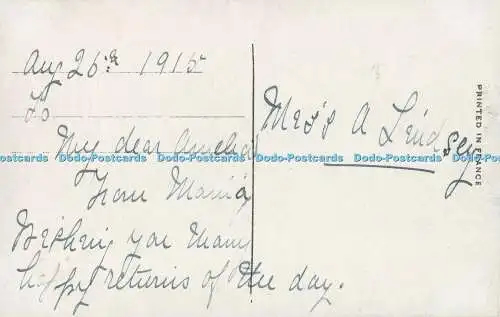 Aug 26th 1915
To
My dear Amelia
from Mama
Wishing you many
happy returns of the day.
Miss A Lindsey
PRINTED IN FRANCE
Dodo-Postcards Dodo-Postcards Dodo-Postcards Dodo-Postcards Dodo-Postcards Dodo-Postcards